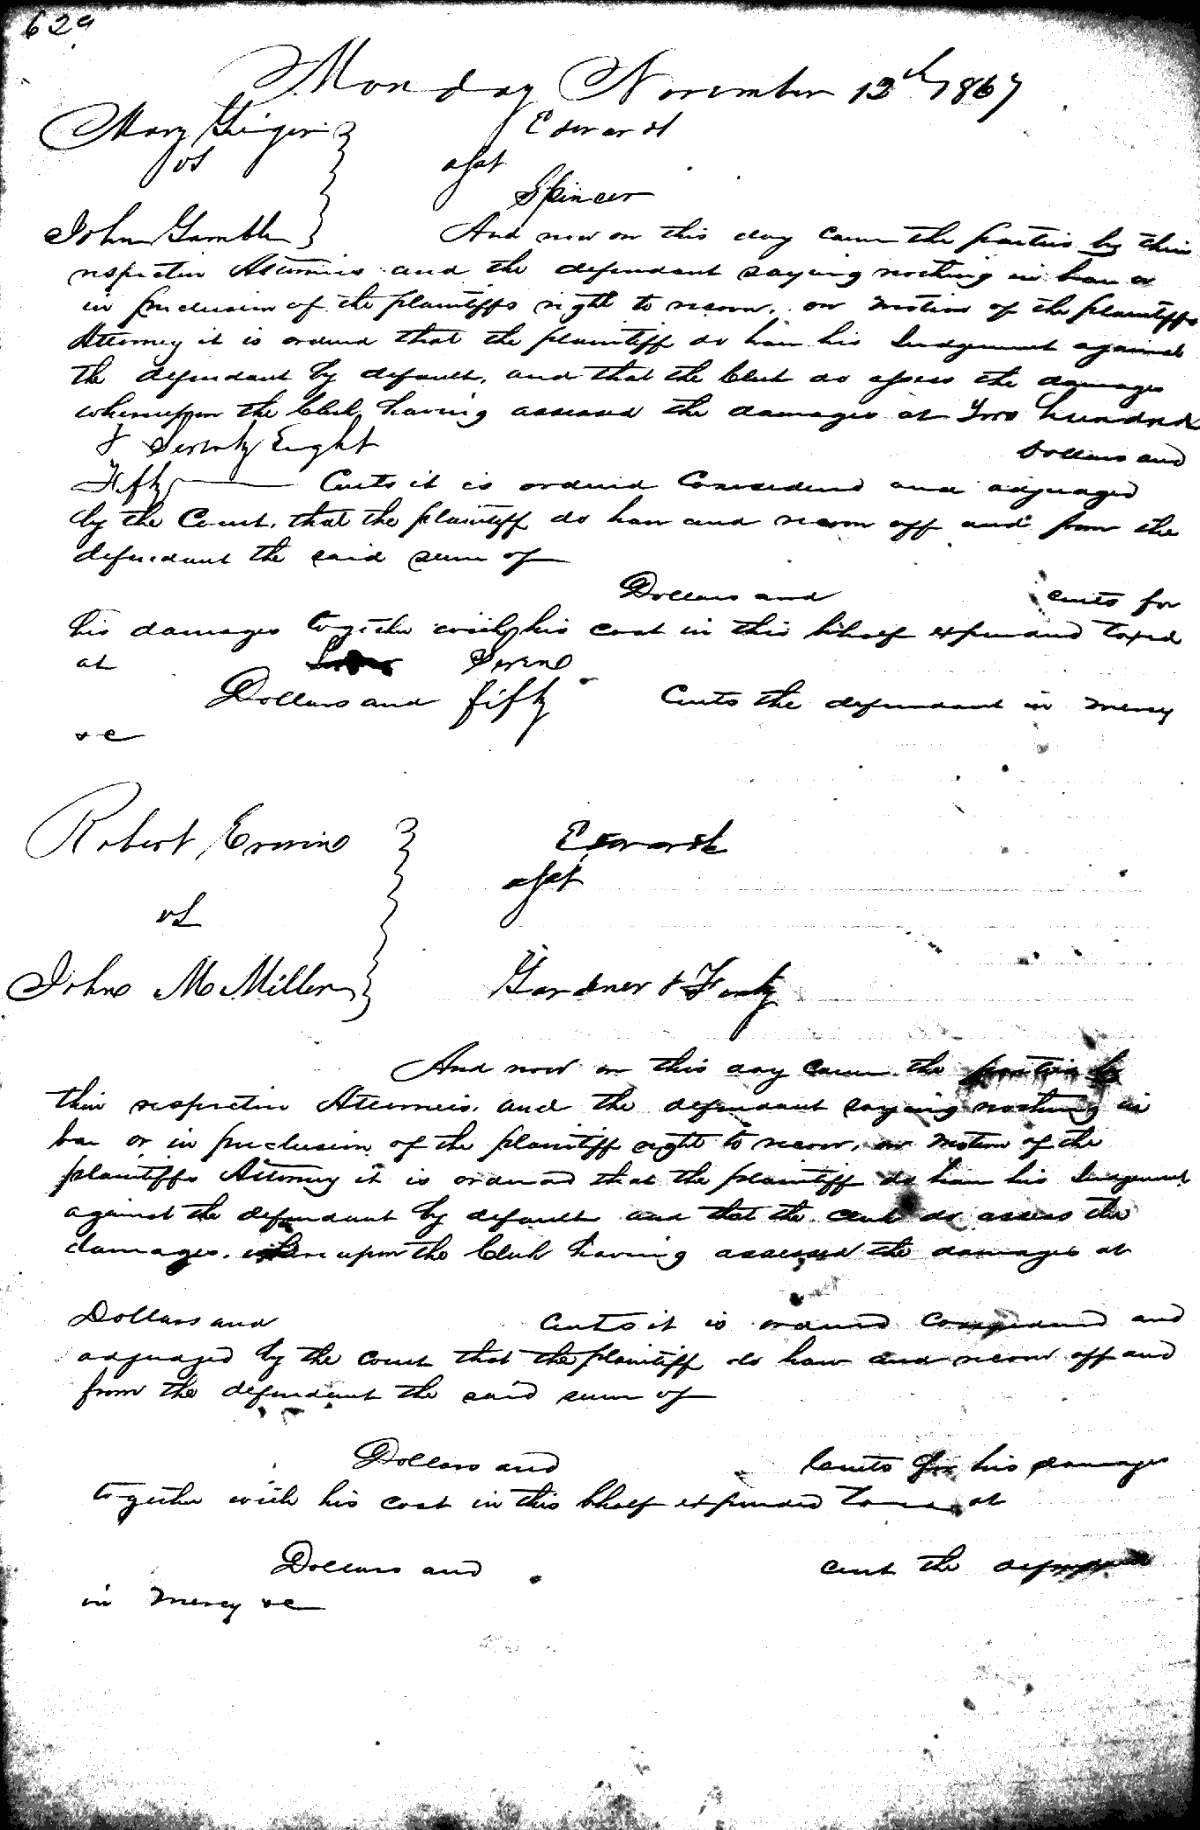 62a
Monday November 12th 1867
Mary Geiger Edwards
vs apst
Spencer
John Gamble And now on this day came the parties by their
respective Attornies and the defendant saying nothing in bar or
in preclusion of the plaintiffs right to recover, on motion of the plaintiffs
Attorney it is ordered that the plaintiff do have his Judgement against
the defendant by default, and that the Clerk do assess the damages
whereupon the Clerk having assessed the damages at Two hundred
& Seventy Eight Dollars and
Fifty Cents it is ordered Considered and adjudged
by the Court, that the plaintiff do have and recover off and from the
defendant the said sum of
Dollars and cents for
his damages together with his cost in this behalf expended taxed
at Seven
Dollars and fifty Cents the defendant in mercy
&c
Robert Erwin Edwards
apst
vs
John McMillen Gardner &
And now on this day came the parties by
their respective Attorneis, and the defendant saying nothing in
bar or in preclusion of the plaintiff right to recover, on motion of the
plaintiffs Attorney it is ordered that the plaintiff do have his Judgement
against the defendant by default and that the clerk do assess the
damages, where upon the Clerk having assessed the damages at
Dollars and cents it is ordered considered and
adjudged by the court that the plaintiff do have and recover off and
from the defendant the said sum of
Dollars and cents for his damages
together with his cost in this bhalf expended at
Dollars and cent the defendant
in mercy &c